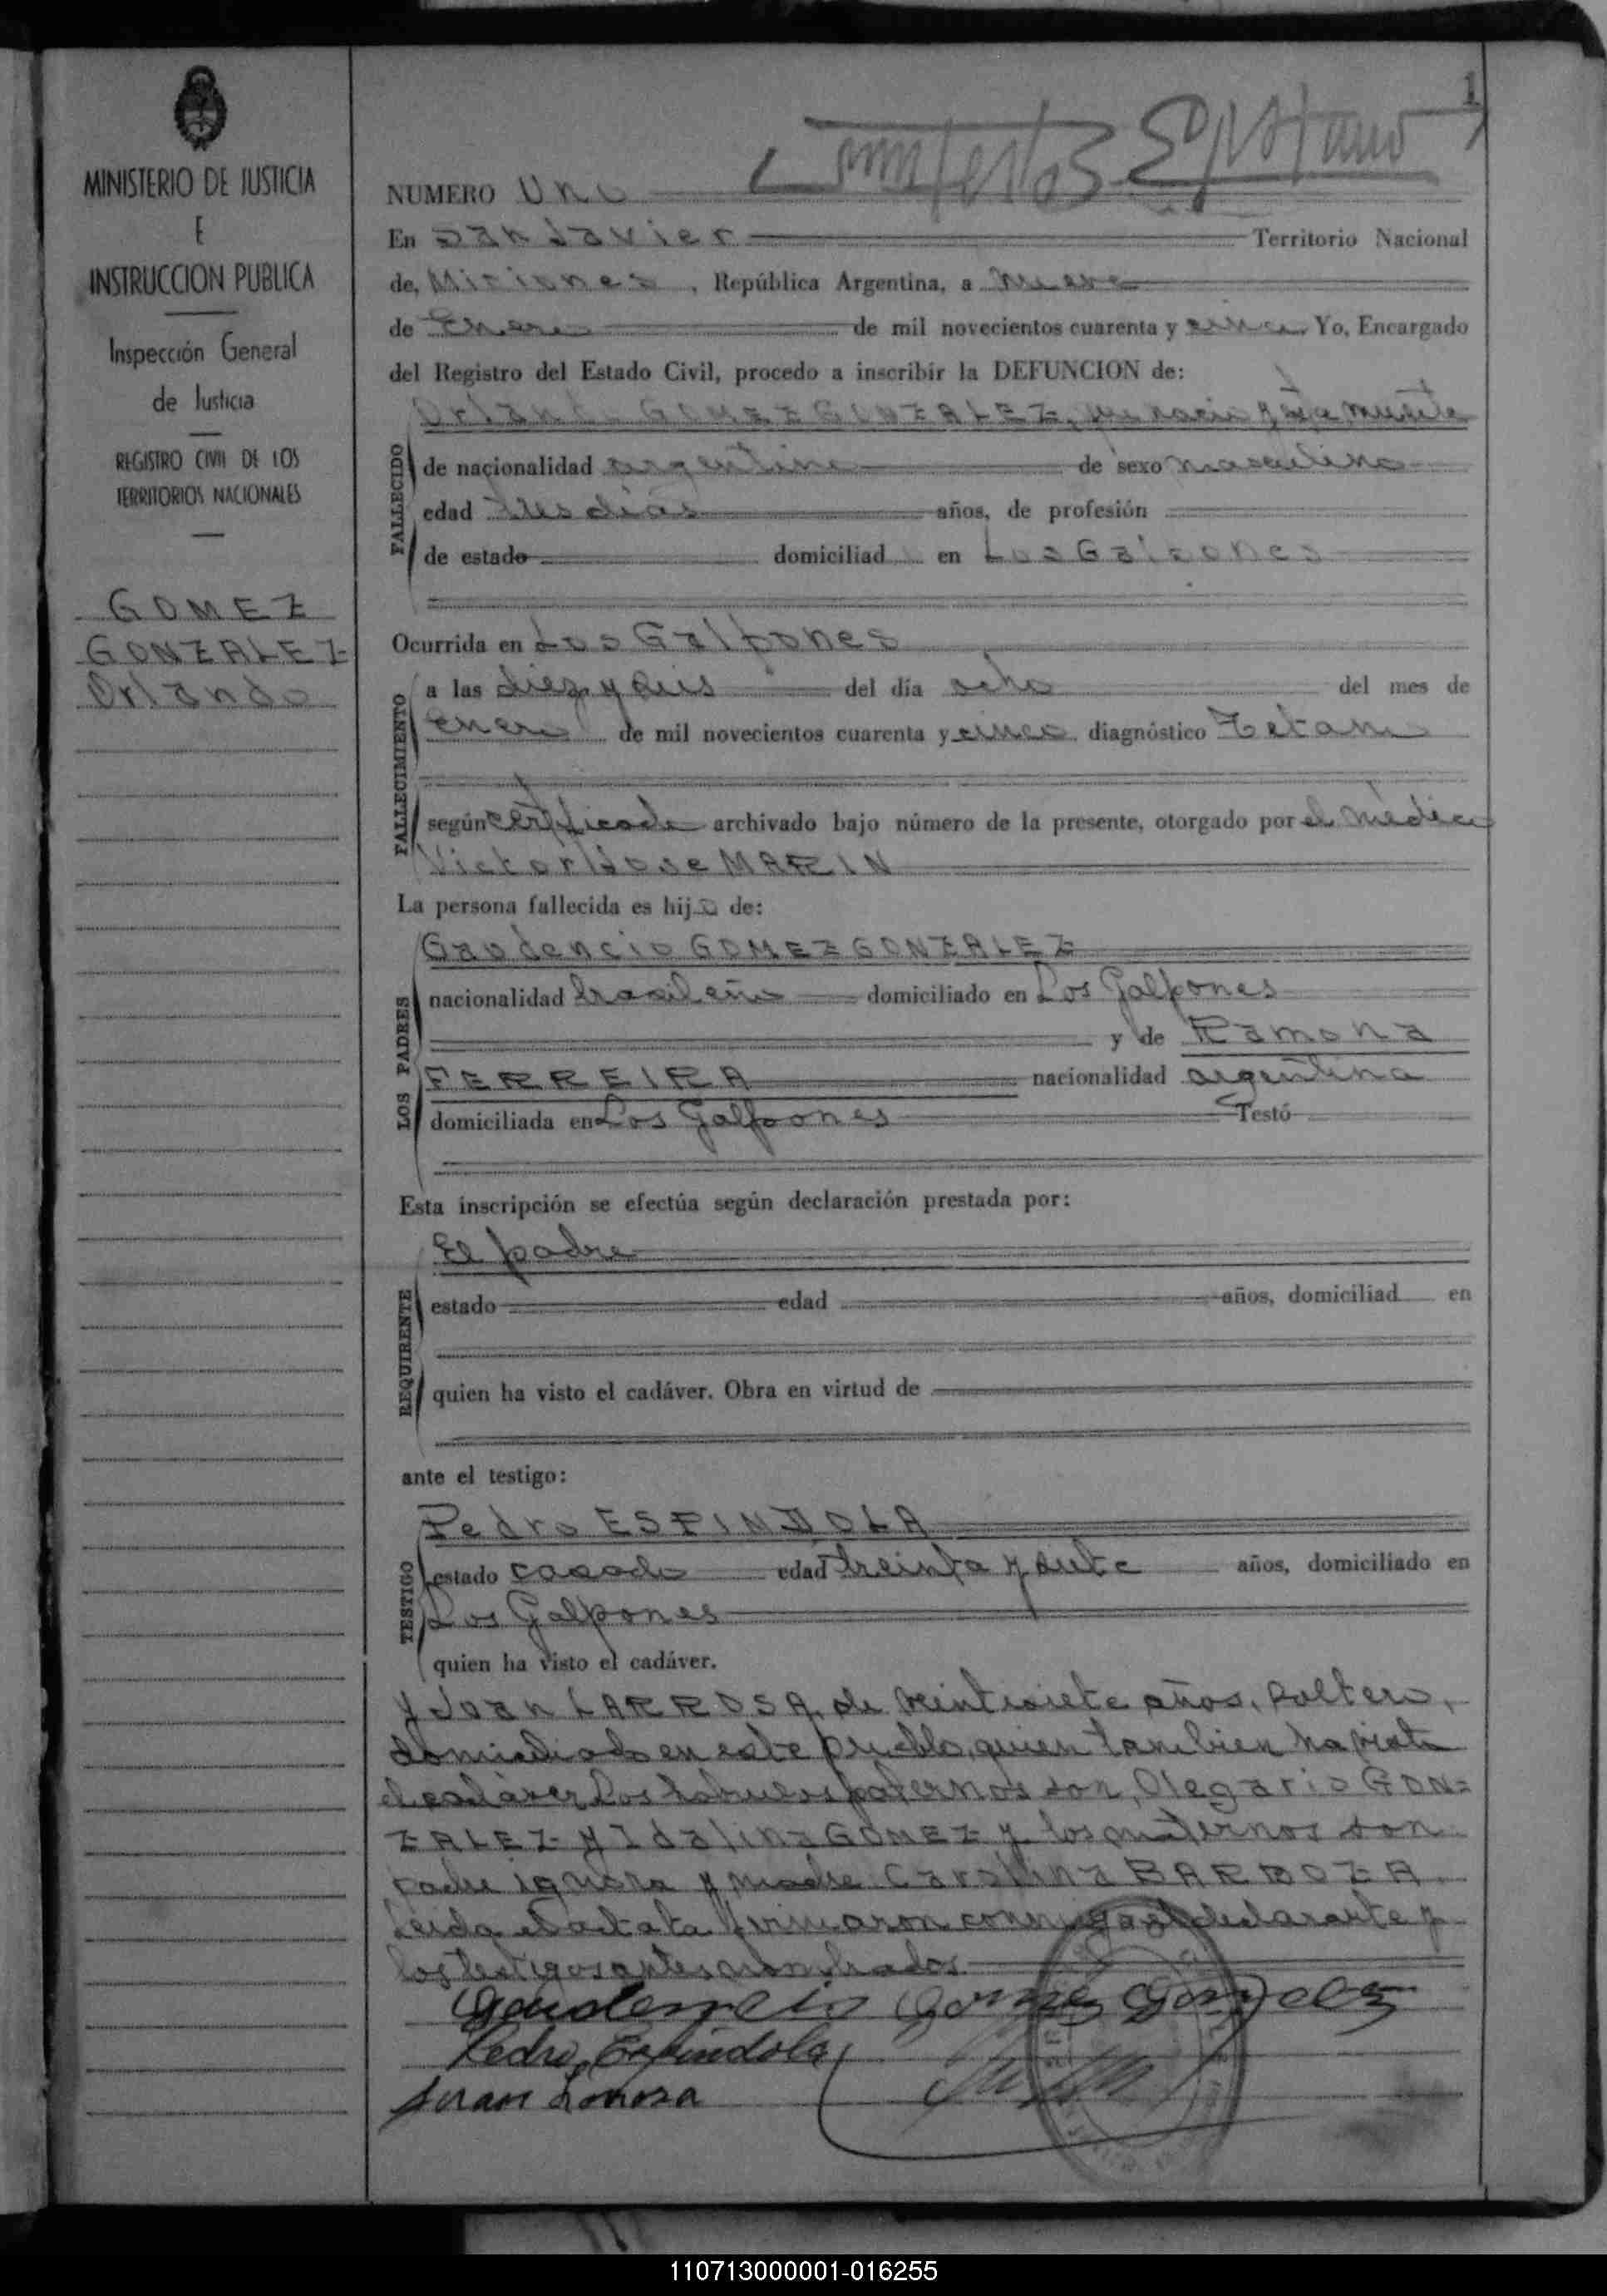 1
MINISTERIO DE JUSTICIA
E
INSTRUCCION PUBLICA
Inspección General
de Justicia
REGISTRO CIVIL DE LOS
TERRITORIOS NACIONALES
GOMEZ
GONZALEZ
Orlando
NUMERO Uno
En San Javier Territorio Nacional
de, Misiones, República Argentina, a nueve
de Enero de mil novecientos cuarenta y cinco. Yo, Encargado
del Registro del Estado Civil, procedo a inscribir la DEFUNCION de:
Orlando GOMEZ GONZALEZ,
FALLECIDO
de nacionalidad argentino de sexo masculino
edad tres días años, de profesión
de estado domiciliad en Los Galpones
Ocurrida en Los Galpones
FALLECIMIENTO
a las diez y seis del día ocho del mes de
Enero de mil novecientos cuarenta y cinco diagnóstico Tetano
según certificado archivado bajo número de la presente, otorgado por el médico
Victor Jose MARIN
La persona fallecida es hijo de:
LOS PADRES
Gaudencio GOMEZ GONZALEZ
nacionalidad brasileño domiciliado en Los Galpones
y de Ramona
FERREIRA nacionalidad argentina
domiciliada en Los Galpones Testó
Esta inscripción se efectúa según declaración prestada por:
REQUIRENTE
El padre
estado edad años, domiciliad en
quien ha visto el cadáver. Obra en virtud de
ante el testigo:
TESTIGO
Pedro ESPINDOLA
estado casado edad treinta y siete años, domiciliado en
Los Galpones
quien ha visto el cadáver.
y Joan LARROSA, de veintisiete años, soltero,
domiciliado en este pueblo, quien tambien ha visto
el cadáver Los habuelos paternos son, Olegario GON=
ZALEZ y Idalina GOMEZ y los maternos son
padre ignora y madre Carolina BARBOZA.
Leida el acta la firmaron conmigo el declarante y
los testigos antes nombrados
Gaudencio Gomez Gonzalez
Pedro Espindola
Juan Larrosa
110713000001-016255